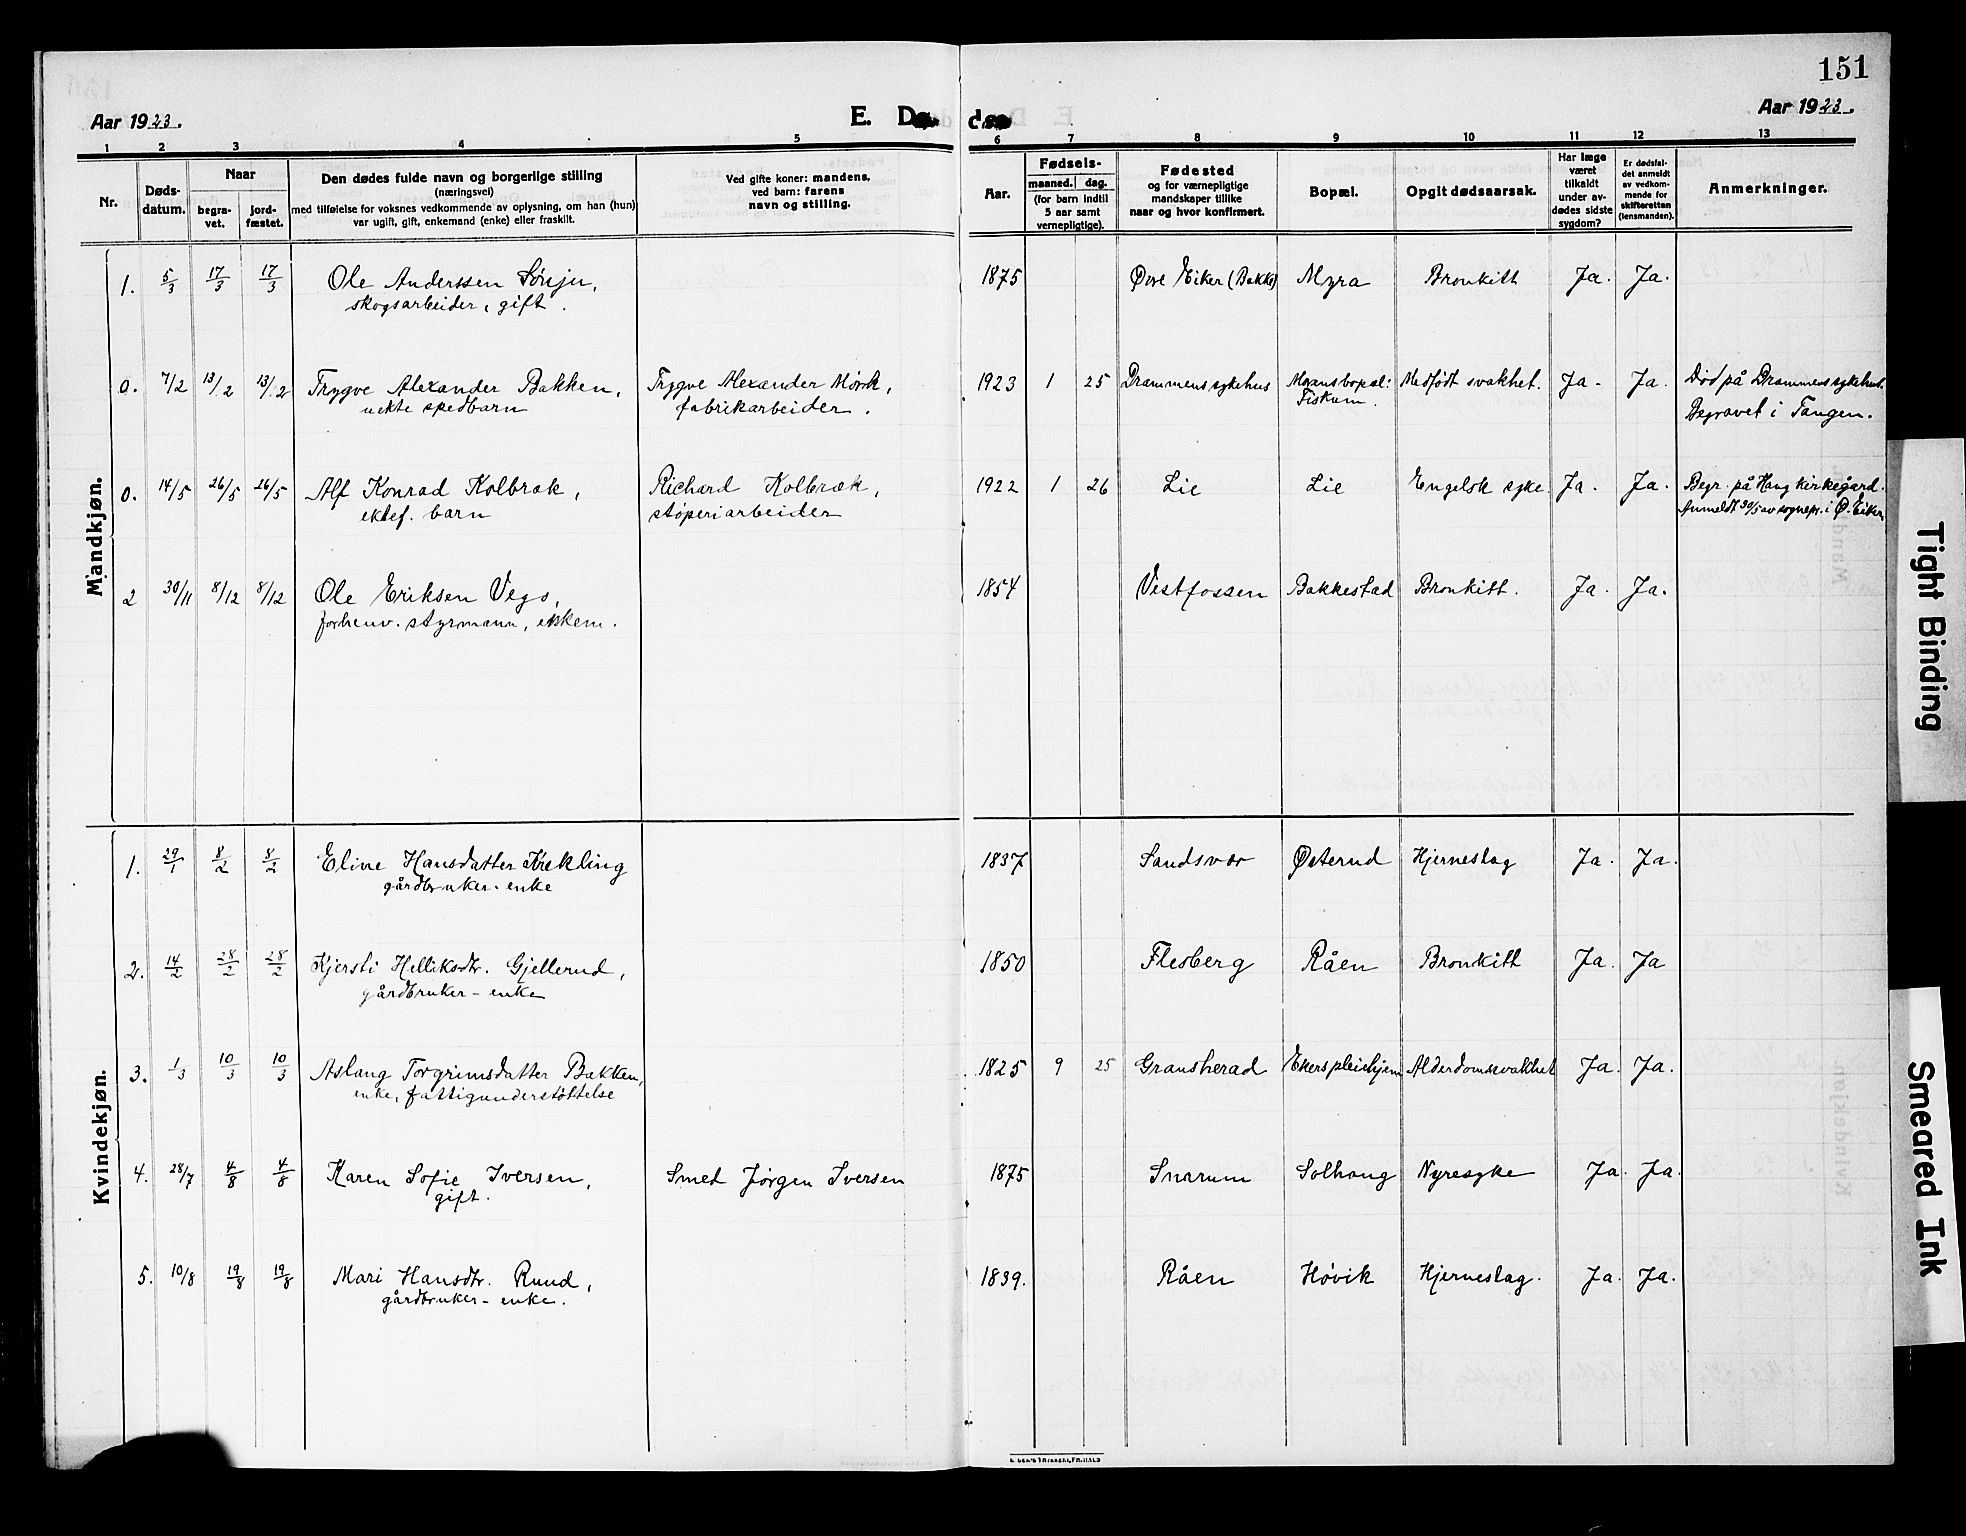 151
Aar 1923.
E. Døde
Aar 1923.
1 2 3 4 5 6 7 8 9 10 11 12 13
Nr.
Døds-
datum.
Naar
begra-
vet.
jord-
fæstet.
Den dødes fulde navn og borgerlige stilling
(næringsvei)
med tilføielse for voksnes vedkommende av oplysning, om han (hun)
var ugift, gift, enkemand (enke) eller fraskilt.
Ved gifte koner: mandens,
ved barn: farens
navn og stilling.
Aar.
Fødsels-
maaned. dag.
(for barn indtil
5 aar samt
vernepligtige).
Fødested
og for værnepligtige
mandskaper tillike
naar og hvor konfirmert.
Bopæl.
Opgit dødsaarsak.
Har læge
været
tilkaldt
under av-
dødes sidste
sygdom?
Er dødsfal-
det anmeldt
av vedkom-
mende for
skifteretten
(lensmanden).
Anmerkninger.
Mandkjøn.
1. 5/3 17/3 17/3 Ole Anderssen Sørsju, 1875 Øvre Eiker (Bakke) Myra Bronkitt Ja. Ja.
skogsarbeider, gift.
0. 7/2 13/2 13/2 Trygve Alexander Bakken, Trygve Alexander Mørk, 1923 1 25 Drammens sykehus Morans bopæl: Medfødt svakhet. Ja - Ja. Død på Drammens sykehus.
uekte spedbarn fabrikarbeider. Fiskum. Begravet i Tangen.
0. 14/5 26/5 26/5 Alf Konrad Kolbræk, Richard Kolbræk, 1922 1 26 Lie Lie Engelsk syke Ja. Ja. Begr. på Haug kirkegård.
ektef. barn støperiarbeider Anmeldt 30/5 av sognepr. i Ø. Eiker
2 30/11 8/12 8/12 Ole Eriksen Vego, 1854 Vestfossen Bakkestad Bronkitt. Ja. Ja.
forhenv. styrmann, enkem.
Kvindekjøn.
1. 29/1 8/2 8/2 Eline Hansdatter Krekling 1837 Sandsvær Østerud Hjerneslag Ja. Ja.
gårdbruker-enke
2. 14/2 28/2 28/2 Kjersti Helliksdtr. Gjellerud, 1850 Flesberg Råen Bronkitt Ja. Ja
gårdbruker-enke
3. 1/3 10/3 10/3 Aslaug Torgrimsdatter Bakken, 1825 9 25 Gransherad Ekers pleiehjem Alderdomssvakhet Ja. Ja.
enke, fattigunderstøttelse
4. 28/7 4/8 4/8 Karen Sofie Iversen, Smed Jørgen Iversen 1875 Snarum Solhaug Nyresyke Ja. Ja.
gift.
5. 10/8 19/8 19/8 Mari Hansdtr. Ruud, 1839. Råen Høvik Hjerneslag. Ja. Ja.
gårdbruker-enke.
Tight Binding
Smeared Ink